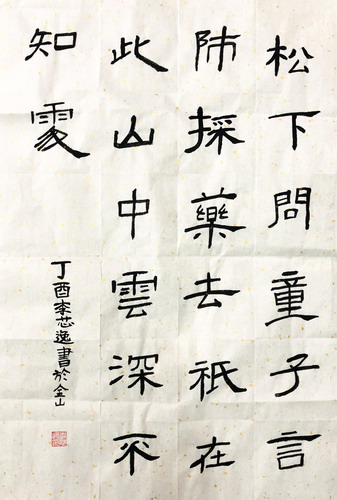 松下問童子言
師採藥去祇在
此山中雲深不
知處
丁酉李芯逸書於金山